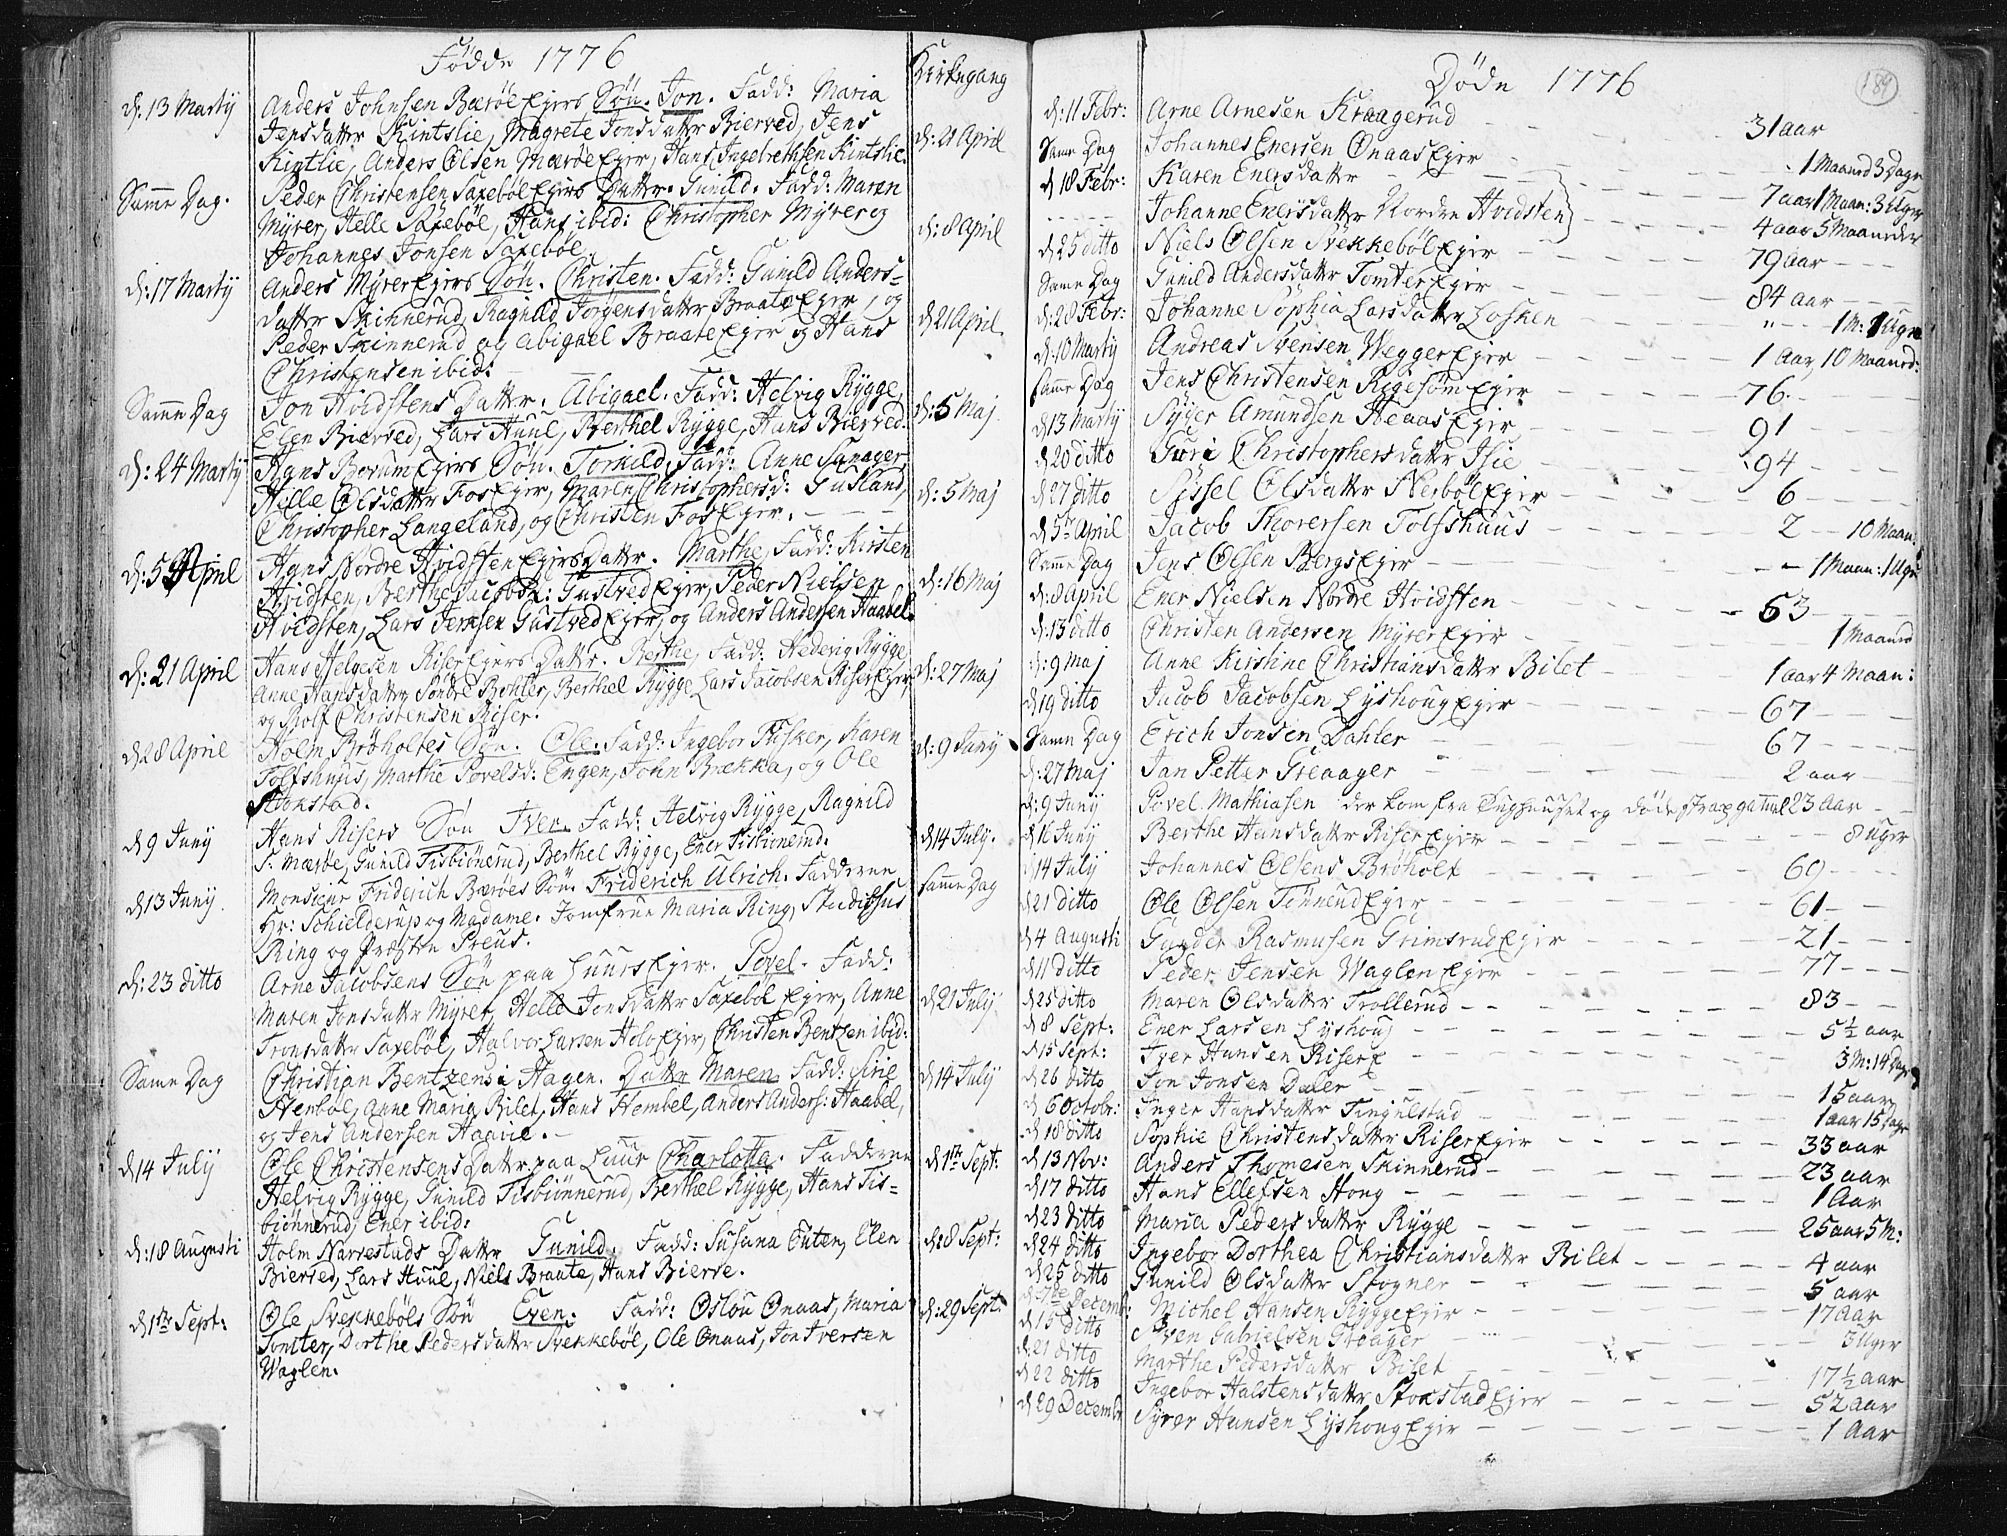 Fødde 1776
Kirkegang
d: 13 Martij
Anders Johnsen Bærøe Eiers Søn. Jon. Fadd: Maria
Jensdatter Kintslie, Magrete Jonsdatter Bierved, Jens
Kintlie, Anders Olsen Mærøe Eier, Hans Ingebrethsen Kintslie.
d: 21 April
Samme Dag.
Peder Christensen Saxebøl Eiers Datter. Gunild. Fadd: Maren
Myrer, Helle Saxebøl, Hans ibid: Christopher Myrer og
Johannes Jonsen Saxebøl
d: 8 April
d: 17 Martij
Anders Myrer Eiers Søn. Christen. Fadd: Gunild Anders-
datter Skinnerud, Ragnild Jørgensdatter Braate Eier, og
Peder Skinnerud og Abigael Braate Eier og Hans
Christensen ibid:
d 21 April.
Samme Dag
Jon Hvidstens Datter. Abigael. Fadd: Helvig Rygge,
Elen Bierved, Lars Huul, Berthel Rygge, Hans Bierved.
d: 5 Maj
d: 24 Martij
Hans Borum Eiers Søn. Torkild. Fadd: Anne Sanager,
Helle Olsdatter Fos Eier, Maren Christophersd: Gusland,
Christopher Langeland, og Christen Fos Eier.
d: 5 Maj
d: 5 April
Hans Nordre Hvidsten Eiers Datter. Marthe, Fadd: Kirsten
Hvidsten, Berthe Jacobsd: Gustved Eier, Peder Nielsen
Hvidsten, Lars Jensen Gustved Eier, og Anders Andersen Haabel.
d: 16 Maj
d: 21 April
Hans Helgesen Riser Eiers Datter. Berthe, Fadd: Hedevig Rygge,
Anne Hansdatter Søndre Bohler, Berthel Rygge Lars Jacobsen Riser Eier,
og Rolf Christensen Riser.
d: 27 Maj
d 28 April
Holm Brøholtes Søn. Ole. Fadd: Ingebor Fusker, Karen
Tolfshuus, Marthe Povelsd: Engen, John Brække, og Ole
Stokstad.
d: 9 Junij
d 9 Junij
Hans Risers Søn Iver. Fadd: Helvig Rygge, Ragnild
S. Mærbe, Gunild Tisbiønerud, Berthel Rygge, Ener Tisbiønerud.
d 14 July.
d 13 Junij
Monsieur Friderich Bærøes Søn. Friderich Ulrich. Fadderne
Hr: Schielderup og Madame. Jomfrue Maria Ring, Studiosus
Ring og Præsten Preus.
samme Dag
d: 23 ditto
Arne Jacobsens Søn paa Luurs Eier. Povel. Fadd:
Maren Jonsdatter Myrer, Helle Jonsdatter Saxebøl Eier, Anne
Tronsdatter Saxebøl, Halvor Larsen Holo Eier, Christen Bentzen ibid:
d 21 July
Samme Dag
Christian Bentzens i Hagen. Datter Maren. Fadd: Sirie
Herbøl, Anne Maria Bilet, Hans Hembel, Anders Anders: Haabel,
og Jens Andersen Haavie.
d 14 July
d 14 July
Ole Christensens Datter paa Luur Charlotta. Fadderne
Helvig Rygge, Gunild Tisbiønnerud, Berthel Rygge, Hans Tis-
biønnerud, Ener ibid:
d 1ste Sept:
d: 18 Augusti
Holm Narrestads Datter Gunild. Fadd: Susana Enten, Elen
Bierved, Lars Huul, Niels Braate, Hans Bierve.
d: 8 Sept:
d 1ste Sept:
Ole Svekkebøls Søn Even. Fadd: Oslou Onaas, Maria
Tomter, Dorthe Pedersdatter Svekkebøl, Ole Onaas, Jon Iversen
Waglen.
d: 29 Sept:
Døde 1776
189
d: 11 Febr: Arne Arnesen Kraagerud 31 aar
Samme Dag Johannes Enersen Onaas Eier 1 Maaned 3 Dage
d 18 Febr: Karen Enersdatter 7 aar 1 Maan: 3 Uger
Johanne Enersdatter Nordre Hvidsten 4 aar 5 Maaneder
d: 25 ditto Niels Olsen Svekkebøl Eier 79 aar
Samme Dag Gunild Andersdatter Tomter Eier 84 aar
d: 28 Febr: Johanne Sophia Larsdatter Losken 1 M: 1 Uge
d: 10 Martij Andreas Svensen Wegger Eier 1 Aar, 10 Maaned:
samme Dag Jens Christensen Rigesøm Eier 76
d 13 Martij Syver Amundsen Heaas Eier 91
d 20 ditto Guri Christophersdatter Isie 94
d 27 ditto Syssel Olsdatter Herbøl Eier 6
d 5te April Jacob Thoresen Tolfshuus 2 10 Maan:
Samme Dag Jens Olsen Bergs Eier 1 Maan: 1 Uge
d: 8 April Ener Nielsen Nordre Hvidsten 63
d: 13 ditto Christen Andersen Myrer Eier 1 Maaned
d: 9 Maj Anne Kirstine Christiansdatter Bilet 1 aar 4 Maan:
d 19 ditto Jacob Jacobsen Lyshoug Eier 67
Samme Dag Erich Jonsen Dahler 67
d: 27 Maj Jan Petter Greaager 2 aar
d: 9 Junij Povel Mathiasen der kom fra Tughuuset og døde strax gamel 23 Aar
d 16 Junij Berthe Hansdatter Riser Eier 8 Uger
d 14 July Johannes Olsens Brøholt 60
d 21 ditto Ole Olsen Tønnerud Eier 61
d 4 Augusti Gunder Rasmusen Grimsrud Eier 21
d 11 ditto Peder Jensen Waglen Eier 77
d 25 ditto Maren Olsdatter Trollerud 83
d 8 Sept: Ener Larsen Lyshoug 5½ aar
d 15 Sept: Iver Hansen Riser E 3 M: 14 Dage
d 26 ditto Jon Jonsen Daler 15 aar
d 6 Octobr: Inger Hansdatter Tingulstad 1 aar 15 Dage
d 18 ditto Sophie Christensdatter Riser Eier 33 aar
d 13 Nov: Anders Thomesen Skinnerud 23 aar
d 17 ditto Hans Ellefsen Houg 1 Aar
d 23 ditto Maria Pedersdatter Rygge 25 aar 5 M:
d 24 ditto Ingebor Dorthea Christiansdatter Bilet 4 aar
d 25 ditto Gunild Olsdatter Stogner 5 aar
d 7de Decemb: Michel Hansen Rygge Eier 17 aar
d 15 ditto Sven Gabrielsen Greager 3 Uger
d: 21 ditto Marthe Pedersdatter Bilet 17½ aar
d 22 ditto Ingebor Halstensdatter Stokstad Eier 52 aar
d 29 Decembr Syver Hansen Lyshoug Eier 1 Aar